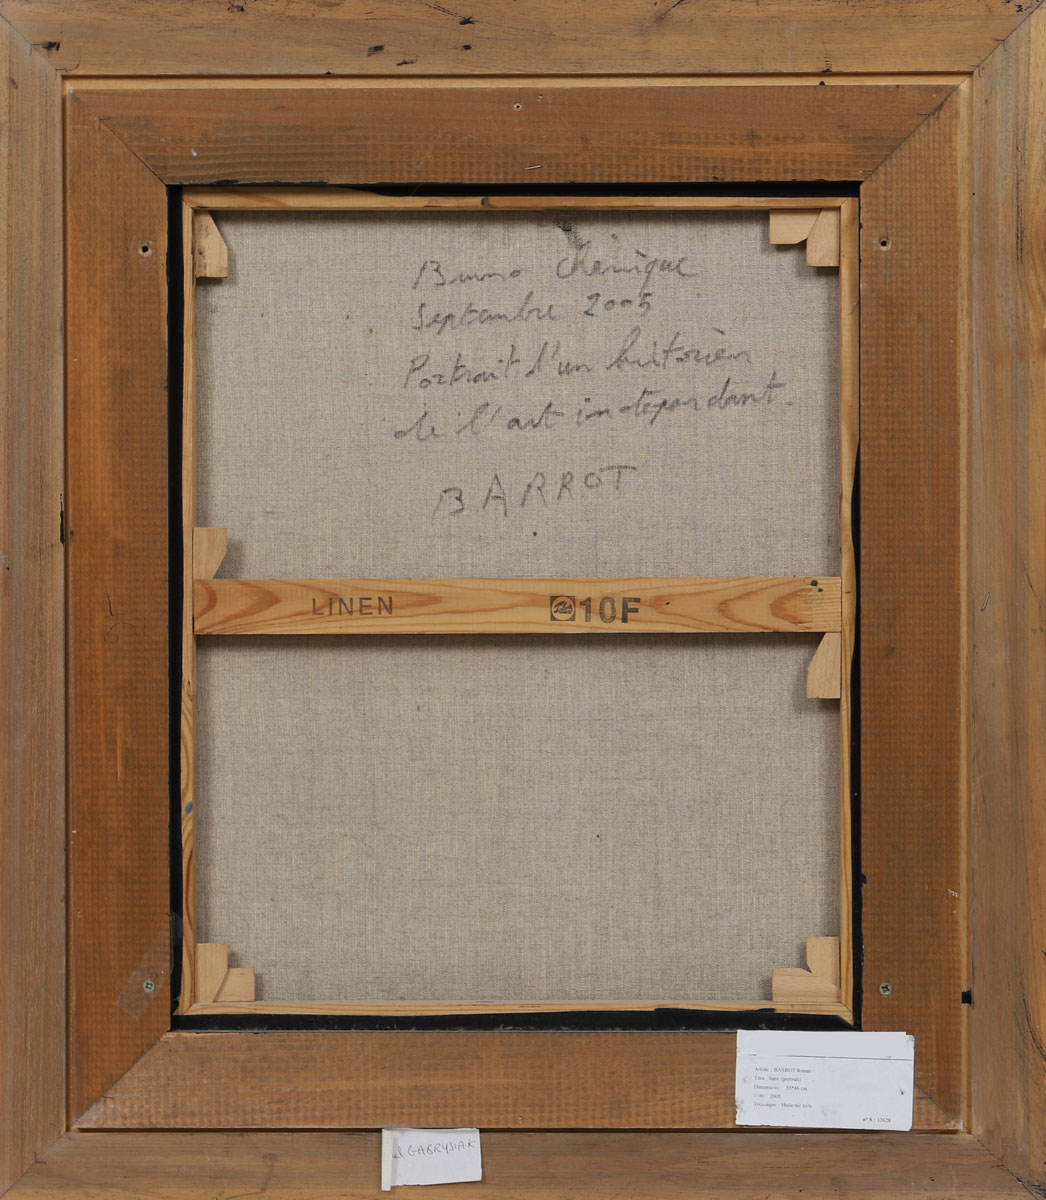 Bruno Chenique
Septembre 2005
Portrait d'un historien
de l'art independant.
BARROT
LINEN 10F
Artiste : BARROT Ronan
Titre : Sans (portrait)
Dimensions : 55*46 cm
2005
Technique : Huile sur toile
n° S : 12628
GABRYSIAK